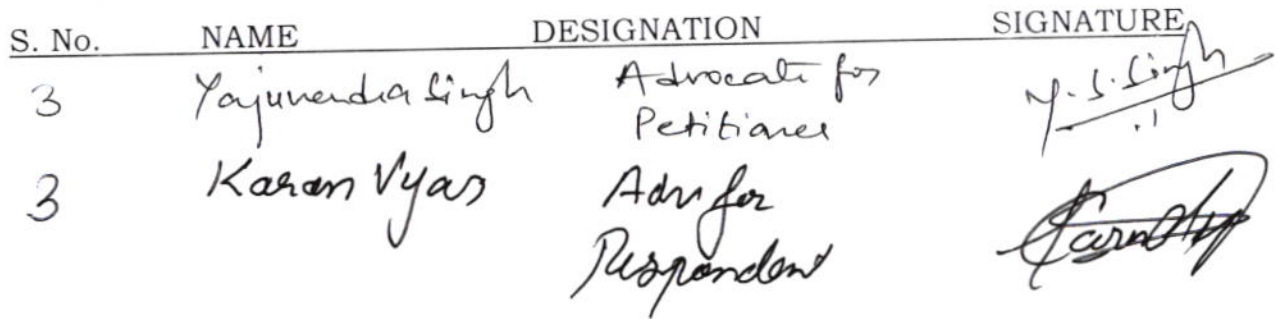 S. No. NAME DESIGNATION SIGNATURE
3 Yajuvendra Singh Advocate for Petitioner Y. S. Singh
3 Karan Vyas Adv for Respondent